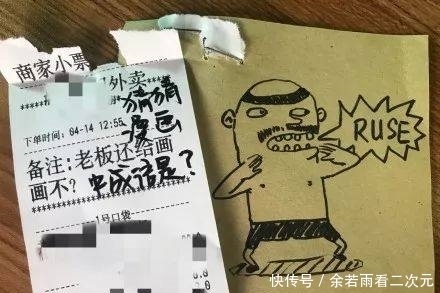 商家小票
外卖
猜猜
漫画
下单时间：04-14 12:55
备注：老板还给画
画不？
成语是？
1号口袋
RUSE
快传号 / 余若雨看二次元